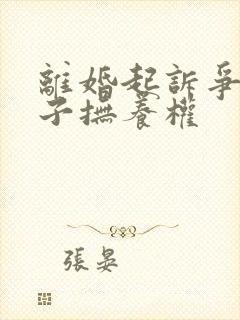 離婚起訴爭
子撫養權
張晏